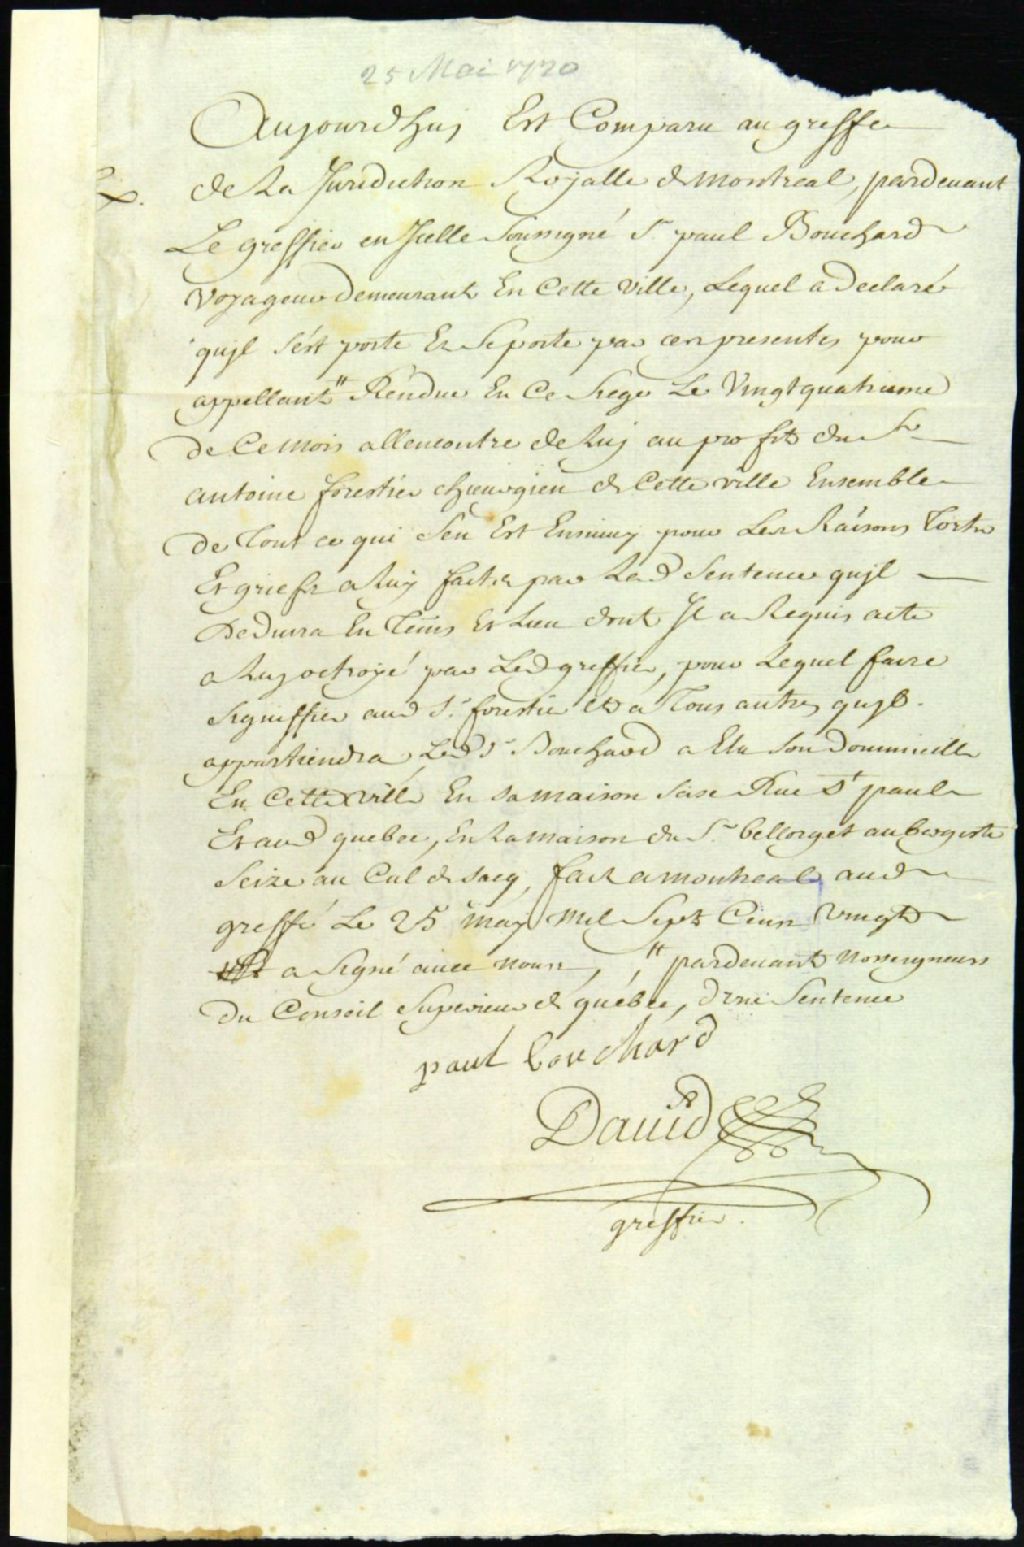 25 Mai 1720
Aujourdhuj Est Comparu au greffe
de La Juridiction Royalle de Montreal, pardevant
Le greffier en Jcelle Soussigné Sr. paul Bouchard
Voyageur demeurant En Cette Ville, Lequel a declaré
qujl s'ést porté Et Se porte par ces presentes pour
appellant # Réndue En Ce Siege Le Vingtquatrieme
de Ce mois allencontre de Luj au profit du Sr
antoine forestier chirurgien de Cette ville Ensemble
de Tout ce qui S'en Est Ensuivy pour Les Raisons Torts
Et griefs a Luy faits par Lad. Sentence qujl
Deduira En Tems Et Lieu dont Jl a Requis acte
a Luy octroyé par Led. greffier, pour Lequel faire
Signiffier aud. Sr. forestier Et a Tous autres qujl
appartiendra Led. Sr. Bouchard a Elu Son Dommicille
En Cette Ville En Sa maison Sise Rue St. paul
Et aud. quebec, En La maison du Sr. bellorget aubergiste
Seize au Cul de Sacq, fait a montreal aud.
greffé Le 25 may mil Sept Cens Vingt
a Signé avec nous, # pardevant Nosseigneurs
Du Conseil Superieur de québec, d'une Sentence
paul bouchard
David
greffier.